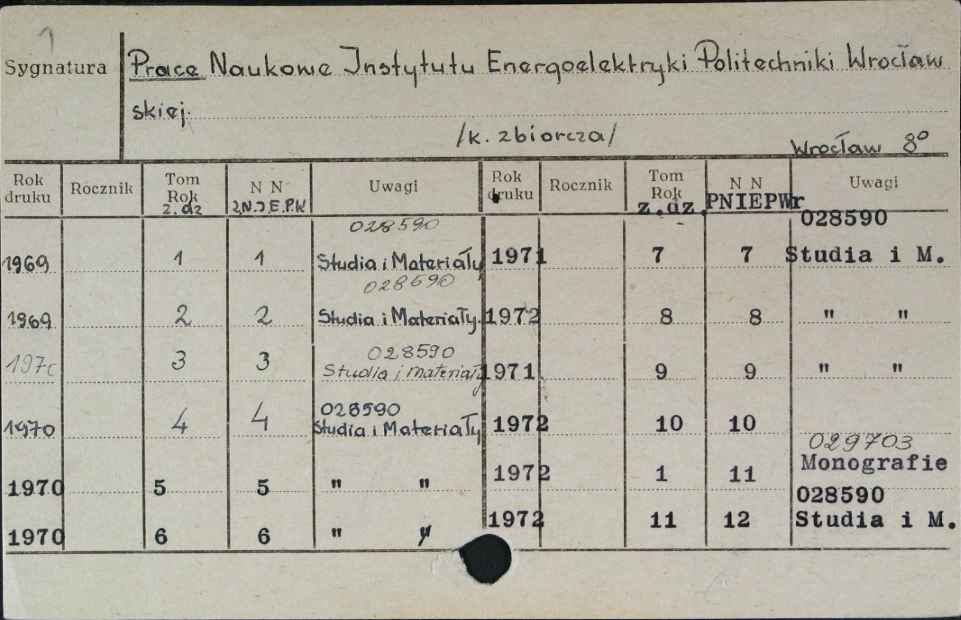 1
Sygnatura
Prace Naukowe Instytutu Energoelektryki Politechniki Wrocław
skiej.
/k. zbiorcza/
Wrocław 8°
Rok druku Rocznik Tom Rok z. dz N N Z.N.I.E.P.W Uwagi
1969 1 1 028590 Studia i Materiały
1969 2 2 028590 Studia i Materiały.
1970 3 3 028590 Studia i materiały
1970 4 4 028590 Studia i Materiały
1970 5 5 " "
1970 6 6 " "
Rok druku Rocznik Tom Rok z.dz. N N PNIEPWr Uwagi
1971 7 7 028590 Studia i M.
1972 8 8 " "
1971 9 9 " "
1972 10 10
1972 1 11 029703 Monografie
1972 11 12 028590 Studia i M.